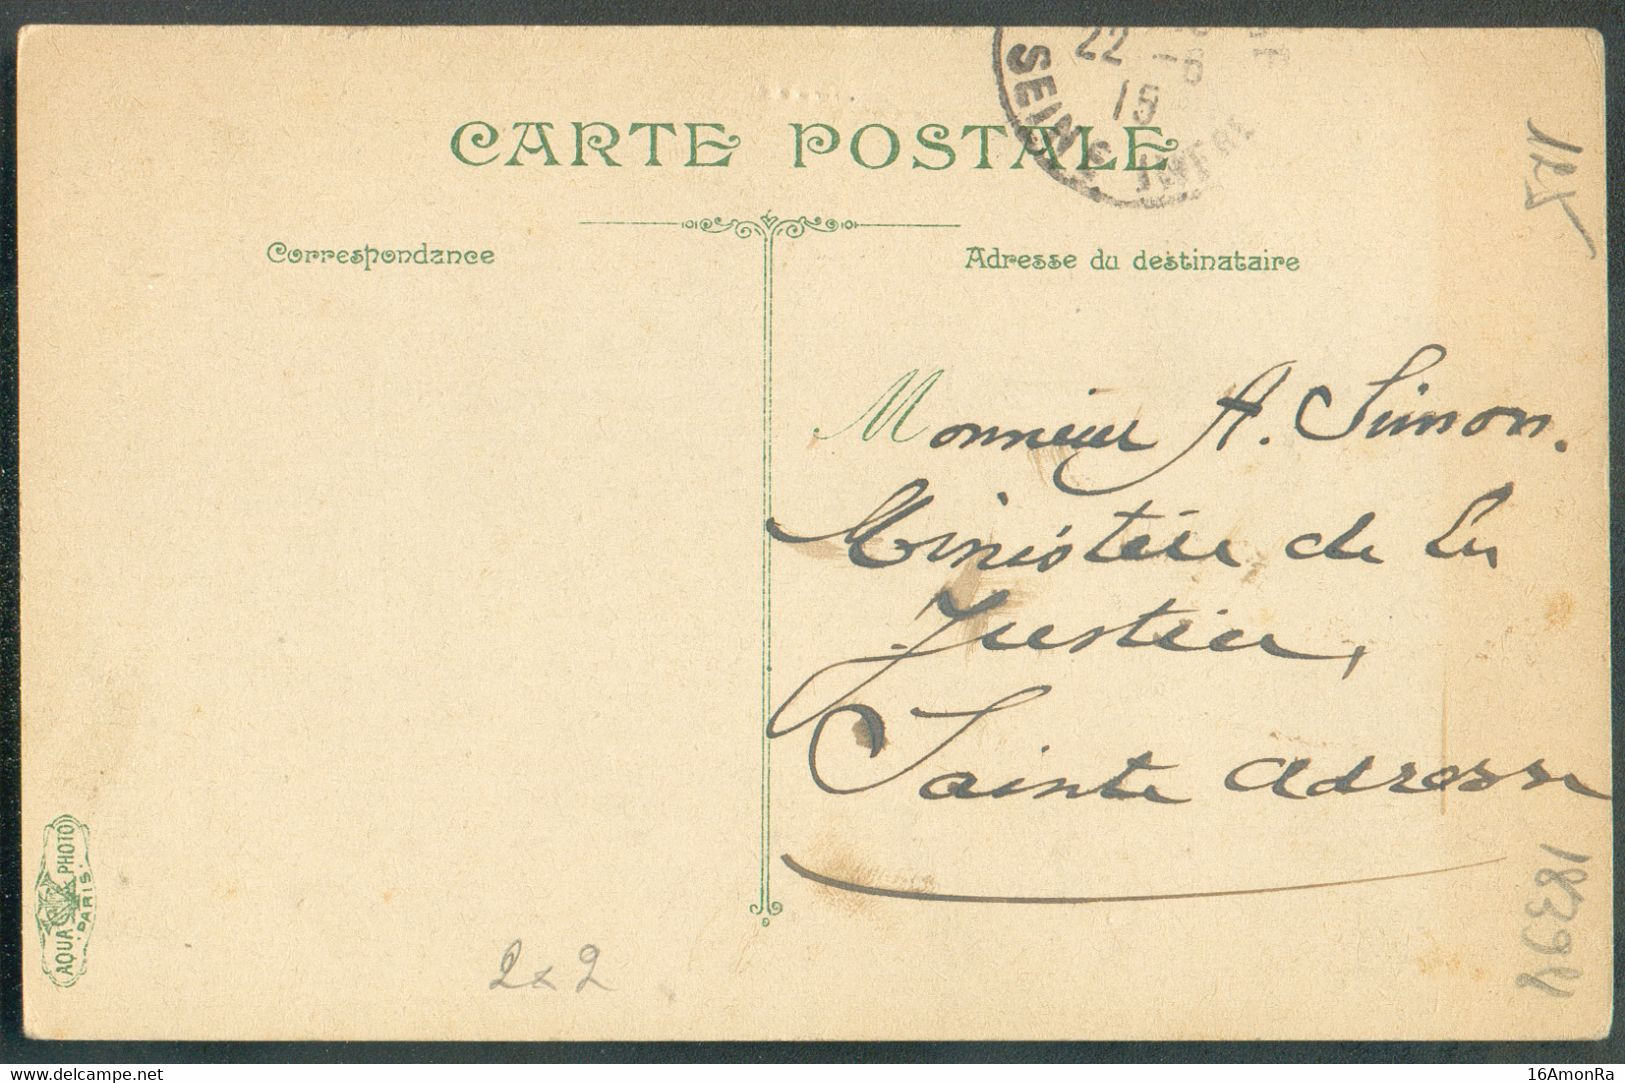 22 -6
15
SEINE INFRE
CARTE POSTALE
Correspondance
Adresse du destinataire
Monsieur A. Simon.
Ministère de la
Justice,
Sainte Adresse
AQUA PHOTO
PARIS.
2x2
www.delcampe.net
16AmonRa